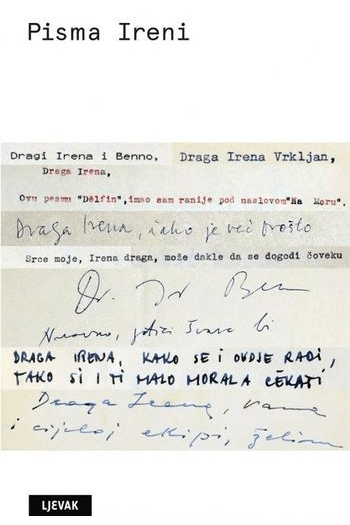 Pisma Ireni
Dragi Irena i Benno, Draga Irena Vrkljan,
Draga Irena,
Ovu pesmu "Delfin",imao sam ranije pod naslovom"Na Moru".
Draga Irena, iako je već prošlo
Srce moje, Irena draga, može dakle da se dogodi čoveku
Naravno,
DRAGA IRENA, KAKO SE I OVDJE RADI,
TAKO SI I TI MALO MORALA ČEKATI
Draga Irena, Vama
i cijeloj ekipi, želim
LJEVAK